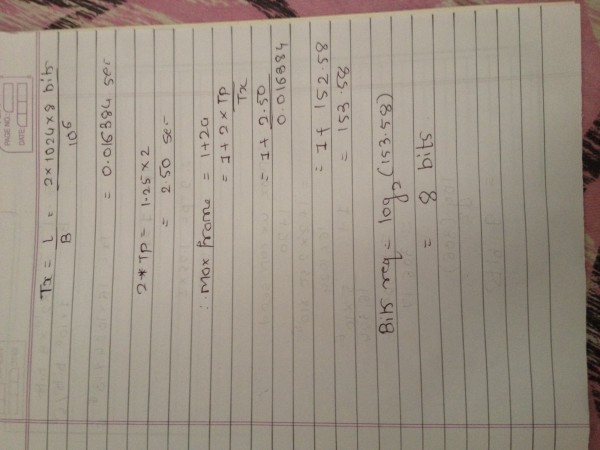 PAGE NO.
DATE:
Tx = L/B = 2×1024×8 bits/10⁶
= 0.016384 sec
2*TP = 1.25×2
= 2.50 sec
∴ Max frame = 1+2a
= 1+2×TP/Tx
= 1+ 2.50/0.016384
= 1+ 152.58
= 153.58
Bits req = log₂(153.58)
= 8 bits